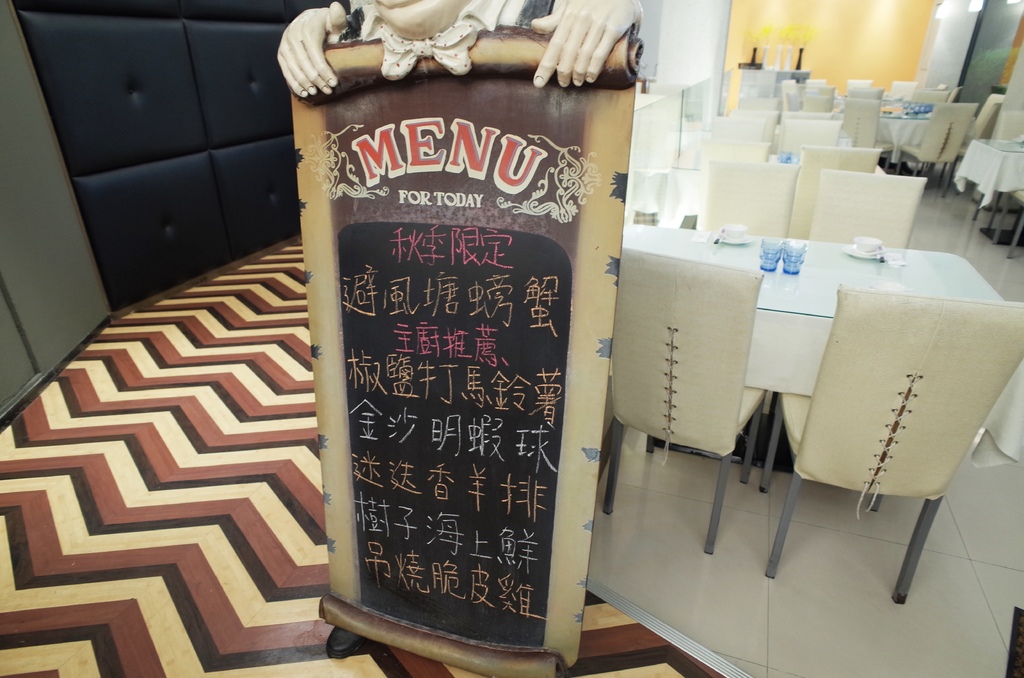 MENU
FOR TODAY
秋季限定
避風塘螃蟹
主廚推薦
椒鹽牛打馬鈴薯
金沙明蝦球
迷迭香羊排
樹子海上鮮
吊燒脆皮雞